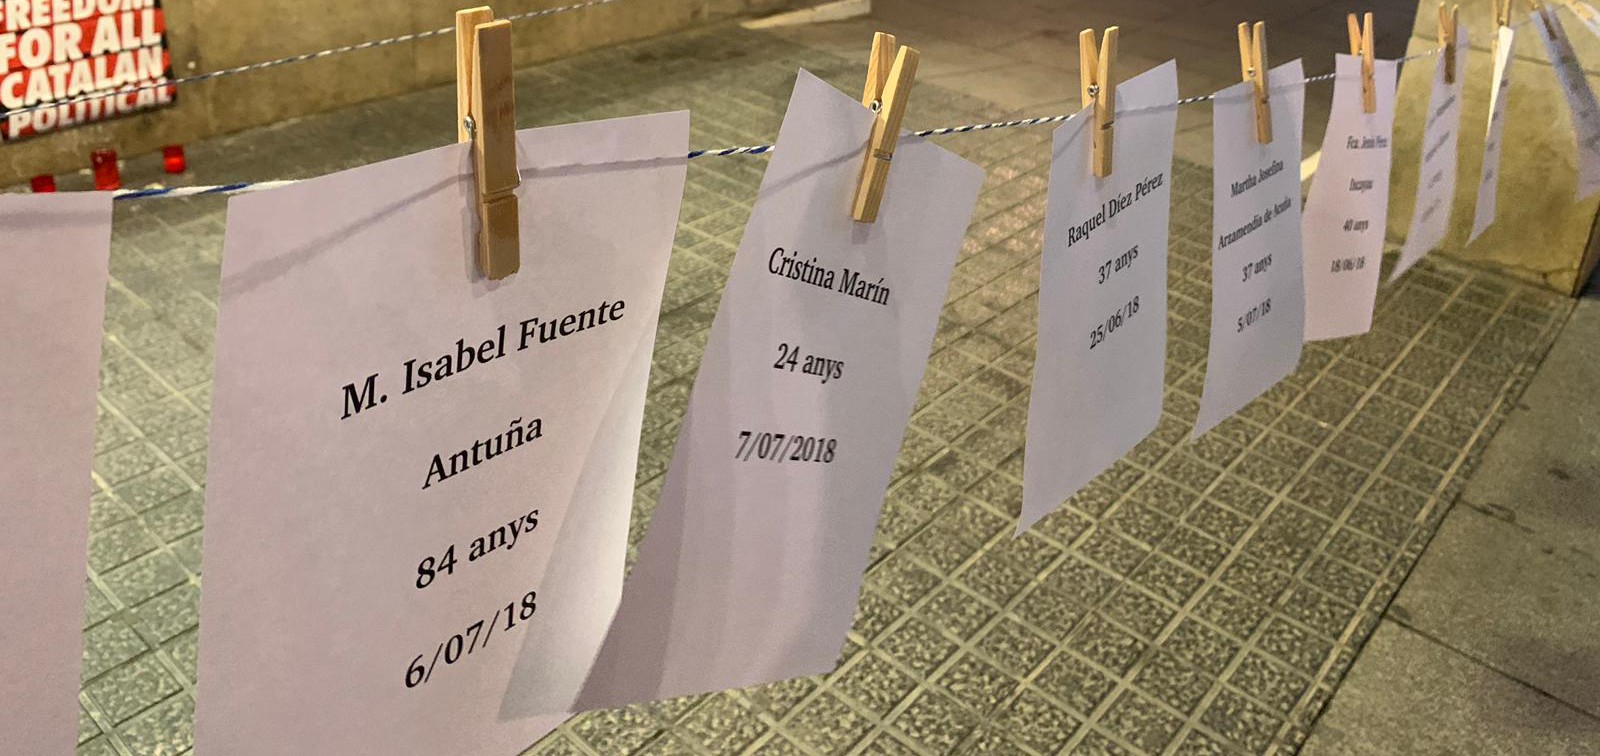 FREEDOM
FOR ALL
CATALAN
POLITICAL
M. Isabel Fuente
Antuña
84 anys
6/07/18
Cristina Marín
24 anys
7/07/2018
Raquel Díez Pérez
37 anys
25/06/18
Martha Josefina
Arzamendia de Acuña
37 anys
5/07/18
Fca. Jesús Pérez
40 anys
18/06/18